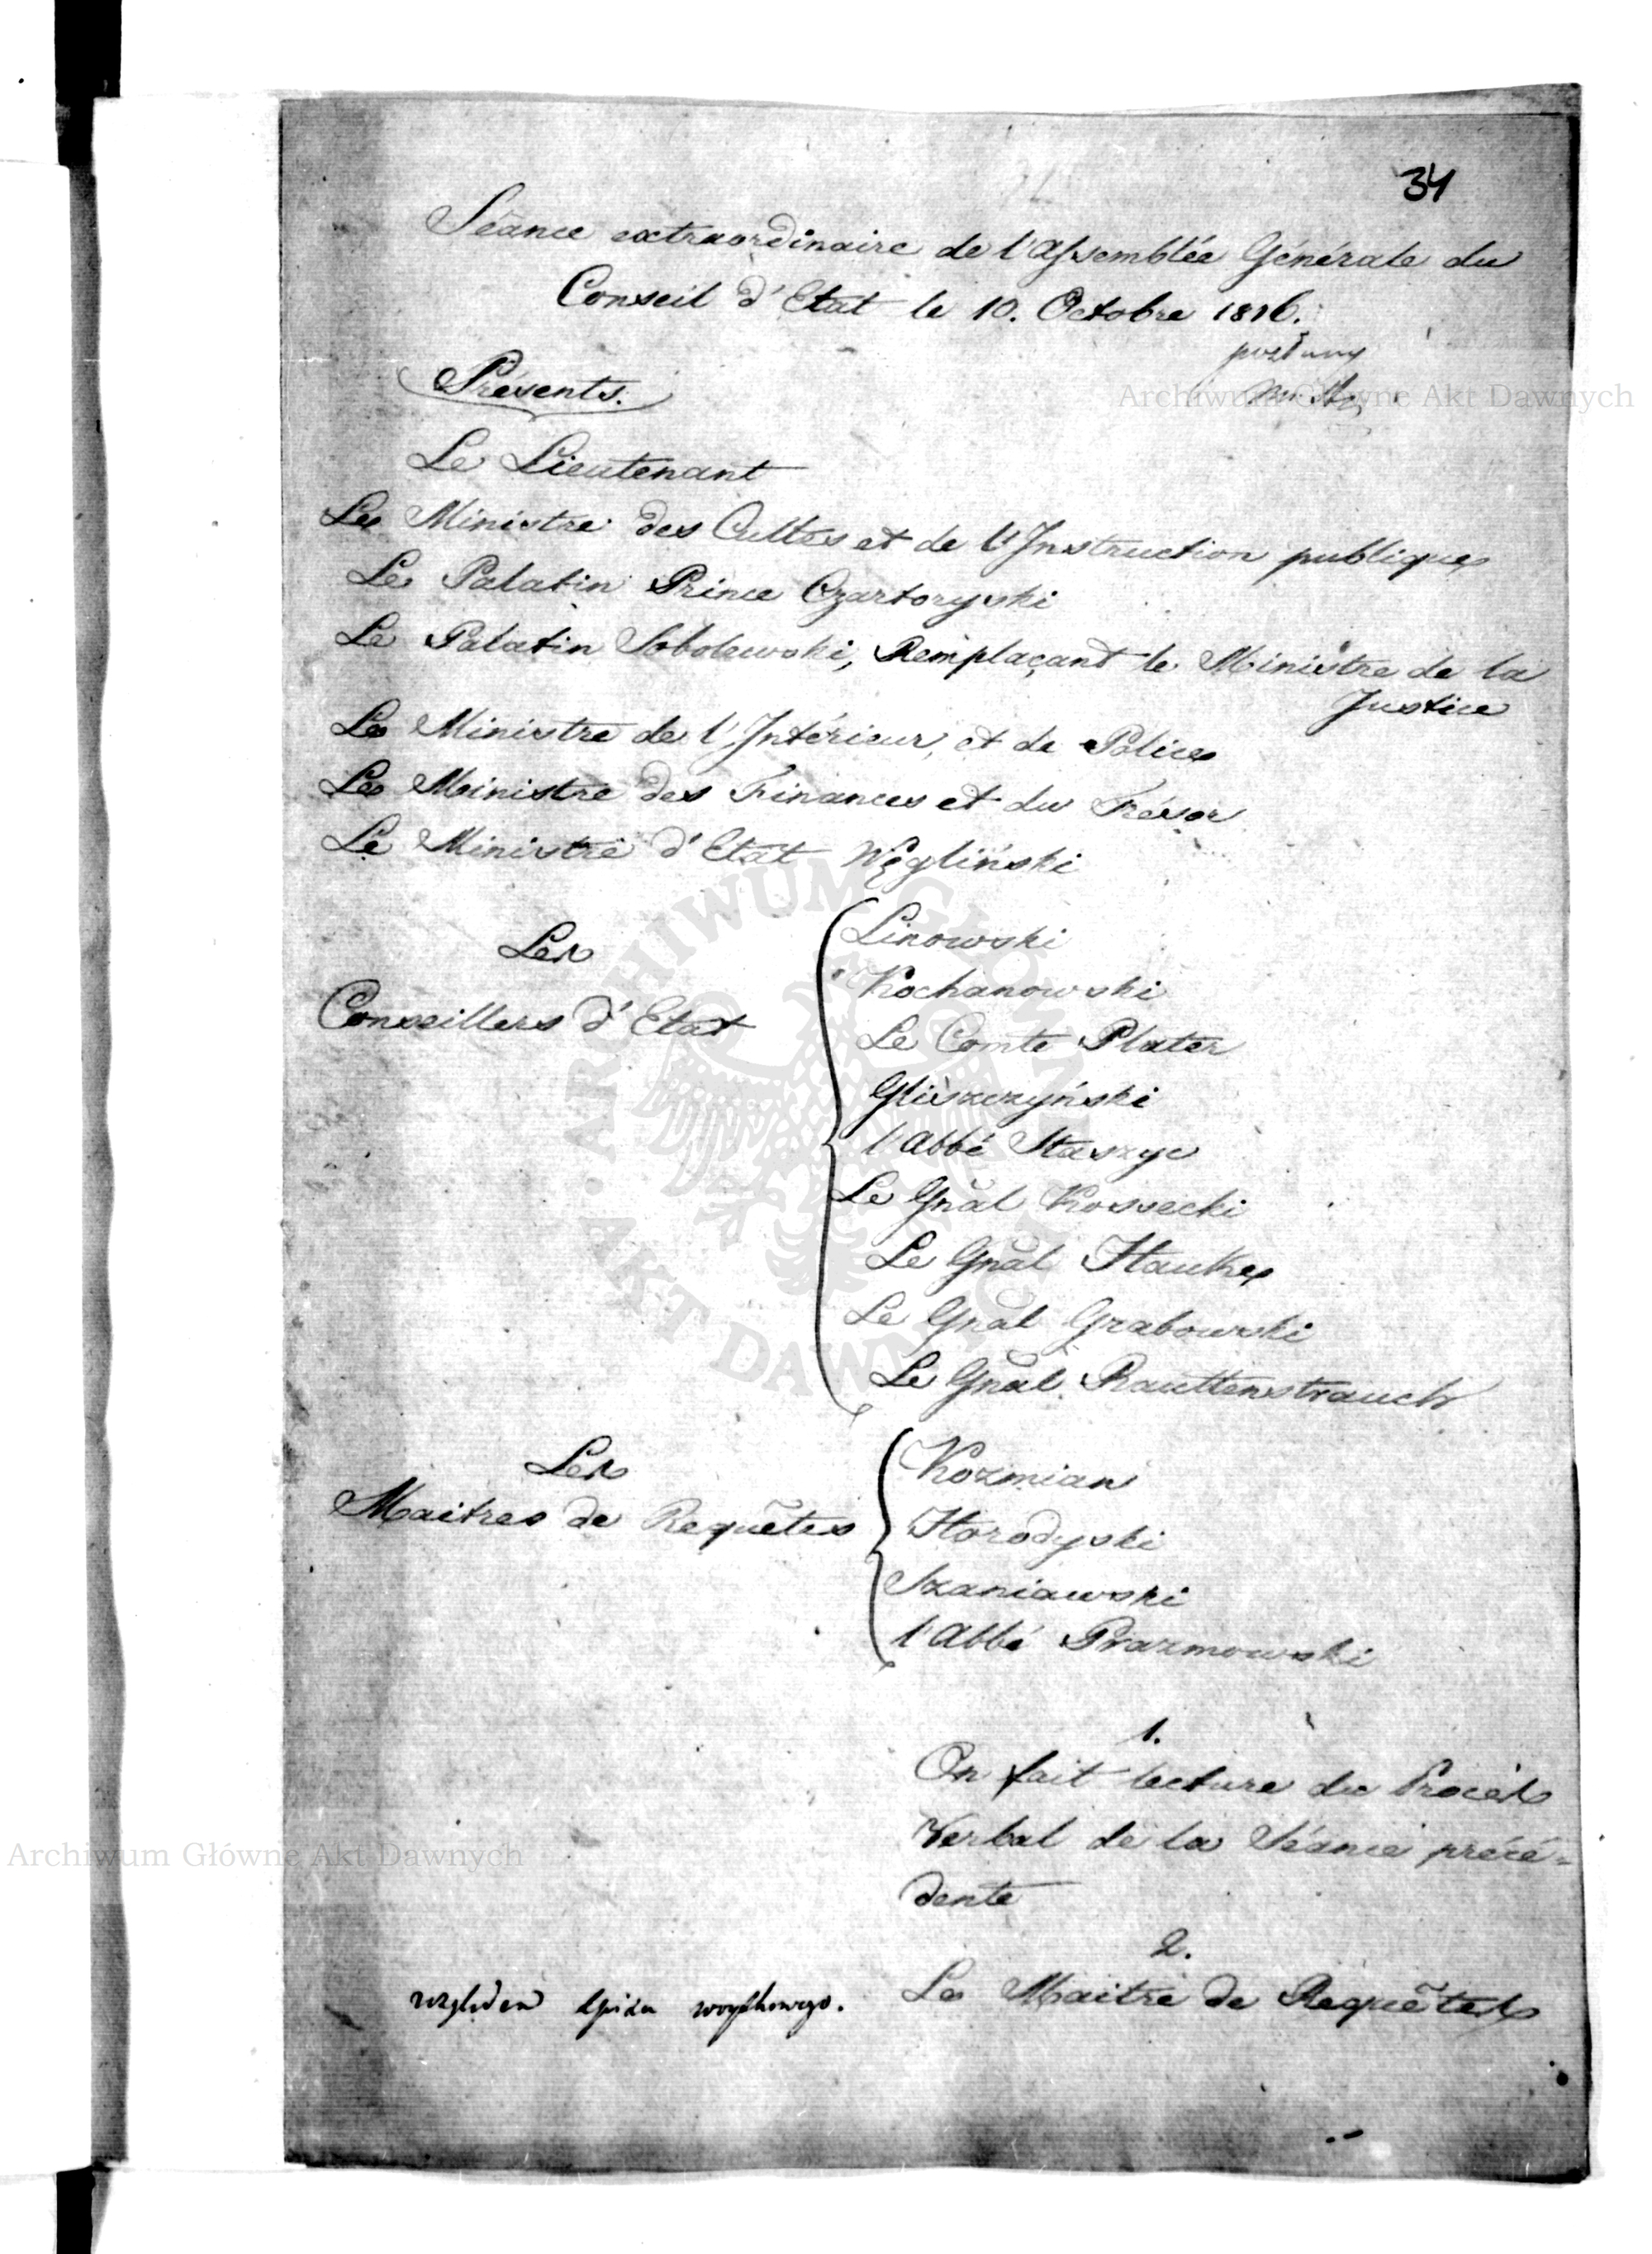 34
Séance extraordinaire de l'Assemblée Générale du
Conseil d'Etat le 10. Octobre 1816.
Présents.
Le Lieutenant
Le Ministre des Cultes et de l'Instruction publique
Le Palatin Prince Czartoryski
Le Palatin Sobolewski, Remplaçant le Ministre de la
Justice
Le Ministre de l'Intérieur, et de Police
Le Ministre des Finances et du Trésor
Le Ministre d'Etat Węgliński
Les
Conseillers d'Etat
Linowski
Kochanowski
Le Comte Plater
Gliszczyński
l'Abbé Staszyc
Le Gnal Kossecki
Le Gnal Hauke
Le Gnal Grabowski
Le Gnal Rauttenstrauch
Les
Maitres de Requêtes
Kozmian
Horodyski
Szaniawski
l'Abbé Prazmowski
1.
On fait lecture du Procès
Verbal de la Séance précé=
dente
2.
Le Maitre de Requêtes
względem
Archiwum Główne Akt Dawnych
ARCHIWUM GŁÓWNE AKT DAWNYCH
Archiwum Główne Akt Dawnych